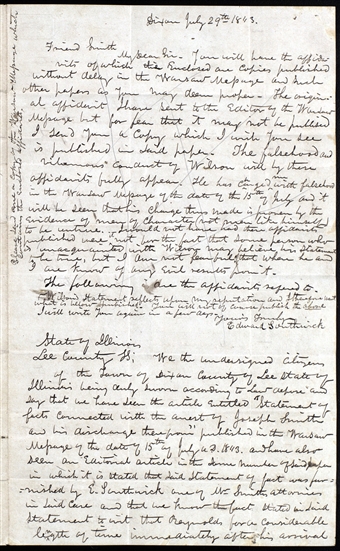 Dixon July 29th 1843.
Friend Smith
My Dear Sir. You will have the affida-
vits of which the Enclosed are Copies published
without delay in the Warsaw Message and such
other papers as you may deem proper. The origin-
al affidavit I have sent to the Editor of the Warsaw
Message but for fear that it may not be published
I send you a Copy which I wish you see
is published in said paper. The falsehood and
villainous Conduct of Wilson will by these
affidavits fully appear. He has charged with falsehood
in the Warsaw Message of the date of the 15th of July and it
will be seen that his charge thus made is proven by the
Evidence of men of Character, not men like himself
to be untrue. I should not have had these affidavits
published were it not for the fact that some persons who
unacquainted with Wilson may believe his State
to be true, but I am not fearful that where he and
I are known of any Evil results from it.
The following are the affidavits refered to.
Wilson's Statement reflects upon my reputation and
what is below
I will write you again in a few days
Yours Truly
Edward Southwick
State of Illinois
Lee County SS; We the undersigned Citizens
of the Town of Dixon County of Lee State of
Illinois being duly sworn according to Law depose and
say that we have seen the article Entitled "Statement of
facts Connected with the arrest of Joseph Smith
and his discharge therefrom" published in the Warsaw
Message of the date of 15th of July A.D. 1843. and have also
seen an Editorial article in the same number of said paper
in which it is stated that said Statement of fact was fur-
-nished by E. Southwick one of Mr Smith, attornies
in said Case and that we know the fact stated in said
Statement to wit that Reynolds for a Considerable
length of time immediately after his arrival